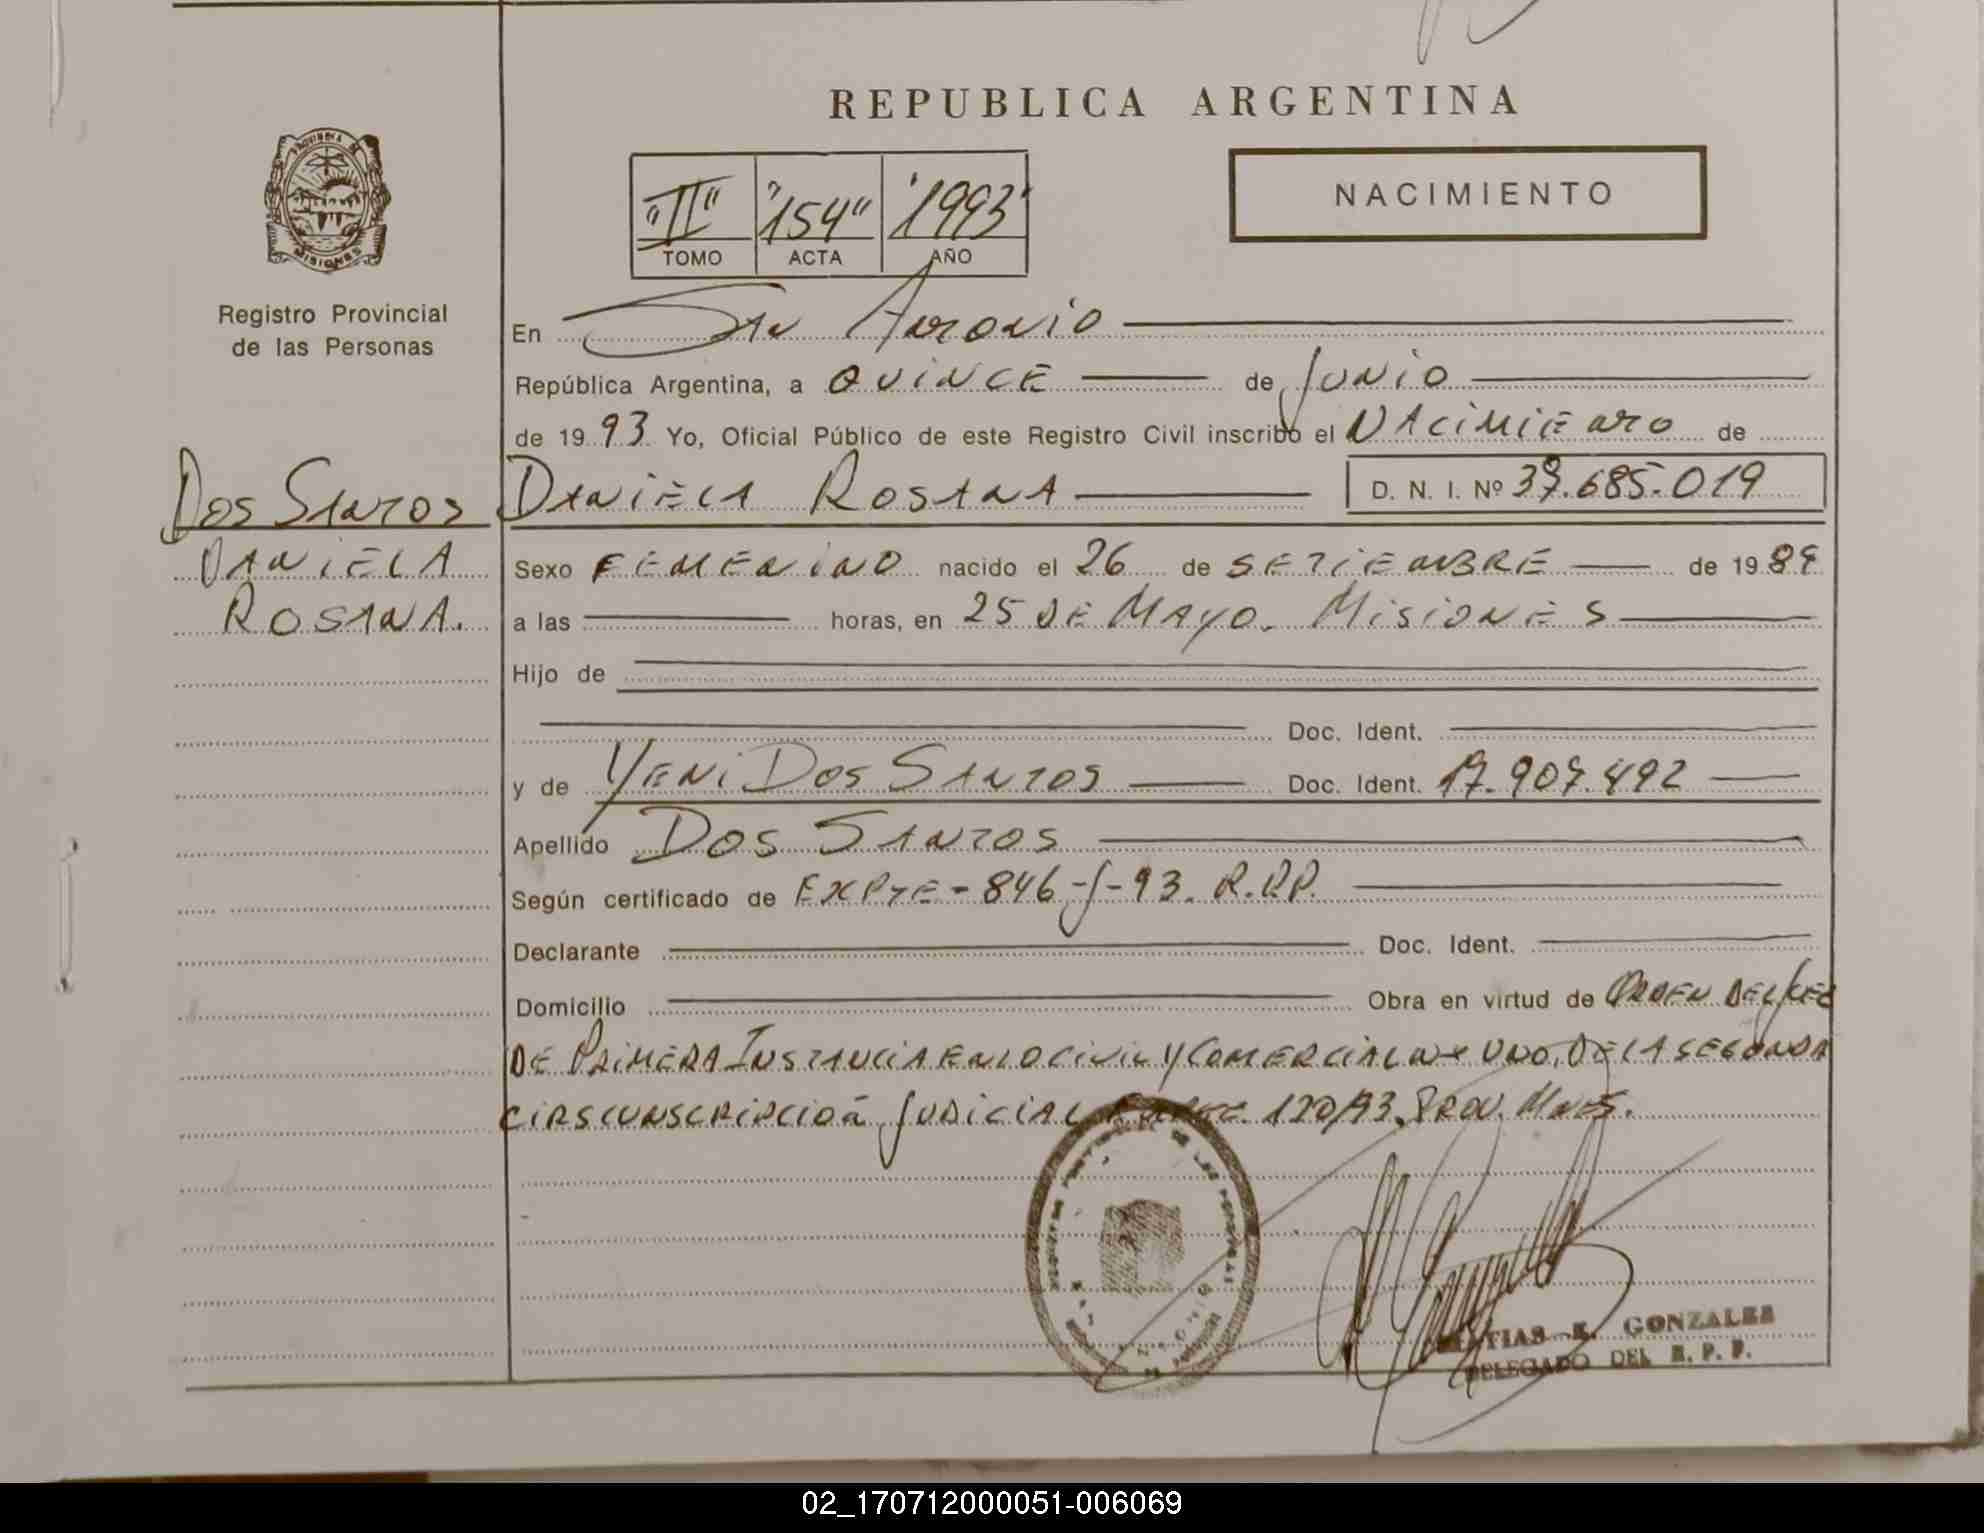 REPUBLICA ARGENTINA
PROVINCIA DE
MISIONES
Registro Provincial
de las Personas
"II" "154" "1993"
TOMO ACTA AÑO
NACIMIENTO
En San Antonio
República Argentina, a QUINCE de Junio
de 1993 Yo, Oficial Público de este Registro Civil inscribo el NACIMIENTO de
DOS SANTOS
DANIELA
ROSANA.
DANIELA ROSANA D. N. I. Nº .685.019
Sexo FEMENINO nacido el 26 de SETIEMBRE de 1989
a las horas, en 25 DE MAYO. MISIONES
Hijo de
Doc. Ident.
y de YENI DOS SANTOS Doc. Ident. 17.907.492
Apellido DOS SANTOS
Según certificado de EXPTE-846-J-93. R.P.P.
Declarante Doc. Ident.
Domicilio Obra en virtud de ORDEN DEL JUEZ
DE PRIMERA INSTANCIA EN LO CIVIL Y COMERCIAL Nº UNO. DE LA SEGUNDA
CIRSCUNSCRIPCIOÁ JUDICIAL EXPTE. 120/93. PROV. MNES.
MATIAS E. GONZALES
DELEGADO DEL R. P. P.
02_170712000051-006069